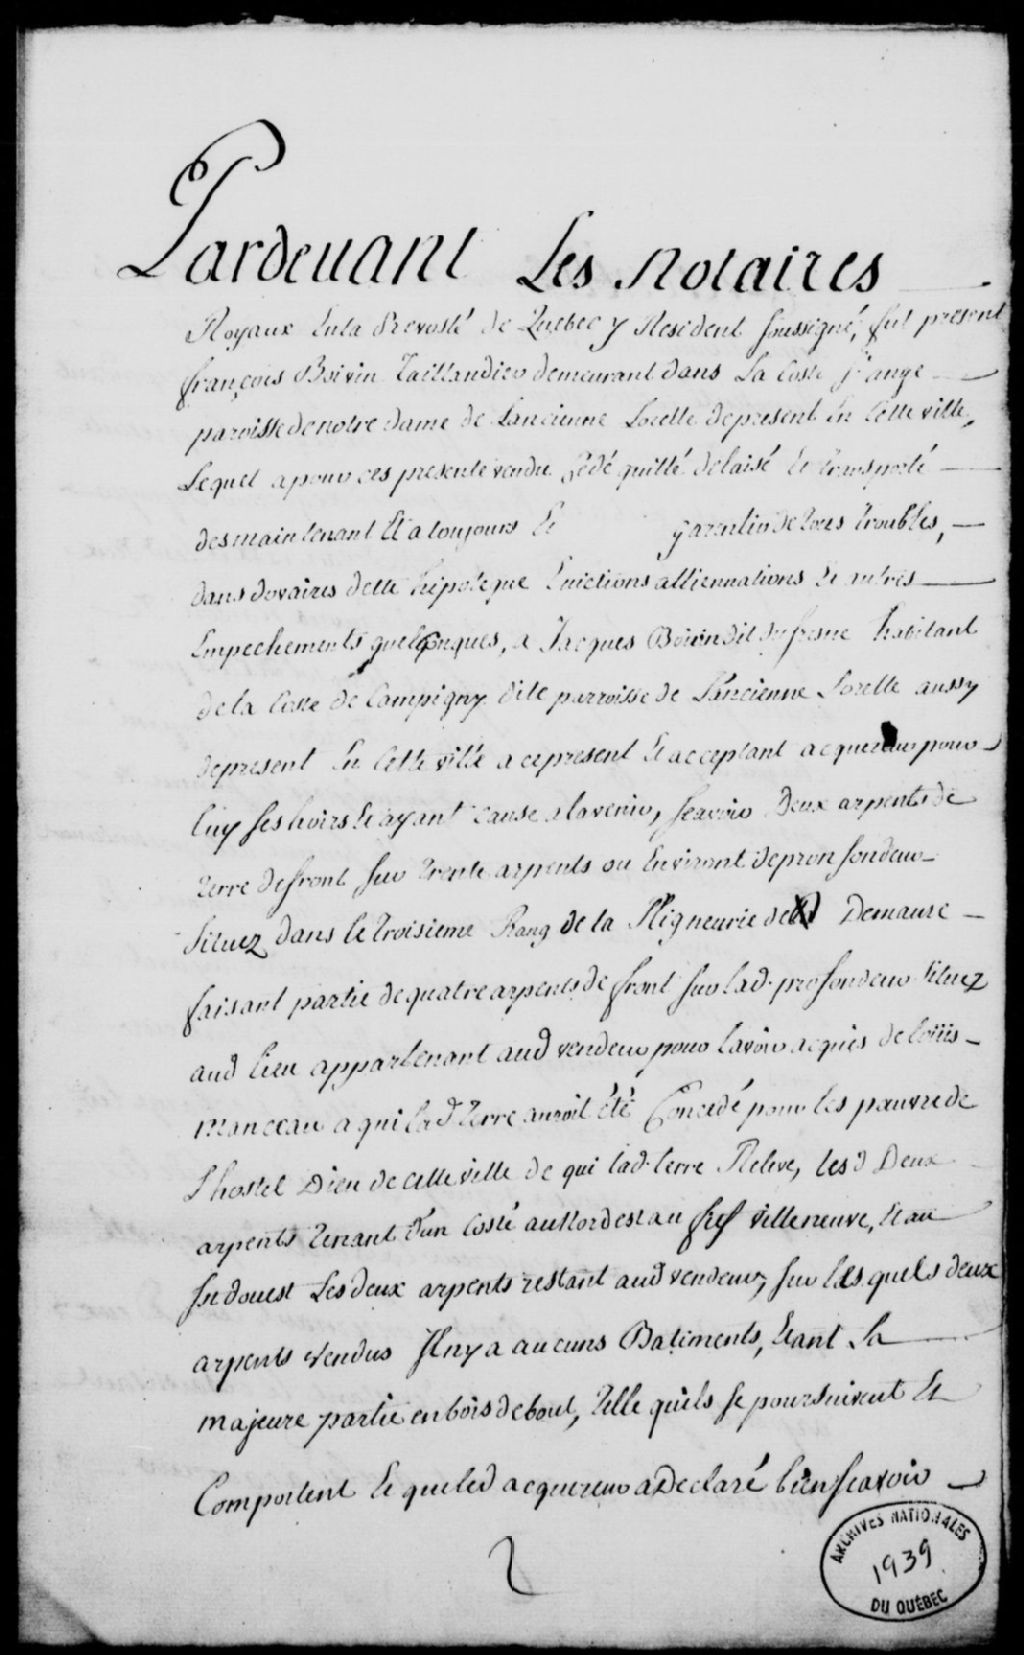 Pardevant Les Notaires
Royaux En la Prevosté de Quebec y Resident soussigné, fut present
françois Boivin Taillandier demeurant dans La Coste St ange
paroisse de notre dame de Lancienne Lorette de present En Cette ville,
Lequel a pour ces presente vendu Cédé quitté delaisé Et transporté
des maintenant Et a toujours Et garentir de tous troubles,
dons dovaires dette hipoteque Evictions alliennations Et autres
Empechements quelconques, a Jacques Boivin dit dufresne habitant
de la Coste de Champigny dite parroisse de L'ancienne Lorette aussy
de present En Cette ville a ce present Et acceptant acquereur pour
luy ses hoirs Et ayant cause a lavenir, scavoir Deux arpents de
terre de front sur trente arpents ou Environt de pronfondeur
situez dans le troisieme Rang de la Seigneurie de Demaure
faisant partie de quatre arpents de front sur lad. profondeur situez
aud lieu appartenant aud vendeur pour lavoir acquis de loüis
manceau a qui lad terre auroit été Concedé pour les pauvre de
Lhostel Dieu de cette ville de qui lad. terre Releve, lesd Deux
arpents tenant d'un Costé au Nord est au fief villeneuve, Et au
Surdouest Les deux arpents restant aud vendeur, sur lesquels deux
arpents vendus Il ny a aucuns Batiments, Etant La
majeure partie en bois debout, telle quils se poursuivent Et
Comportent Et que led acquereur a Declaré bien scavoir
2
ARCHIVES NATIONALES
1939
DU QUÉBEC